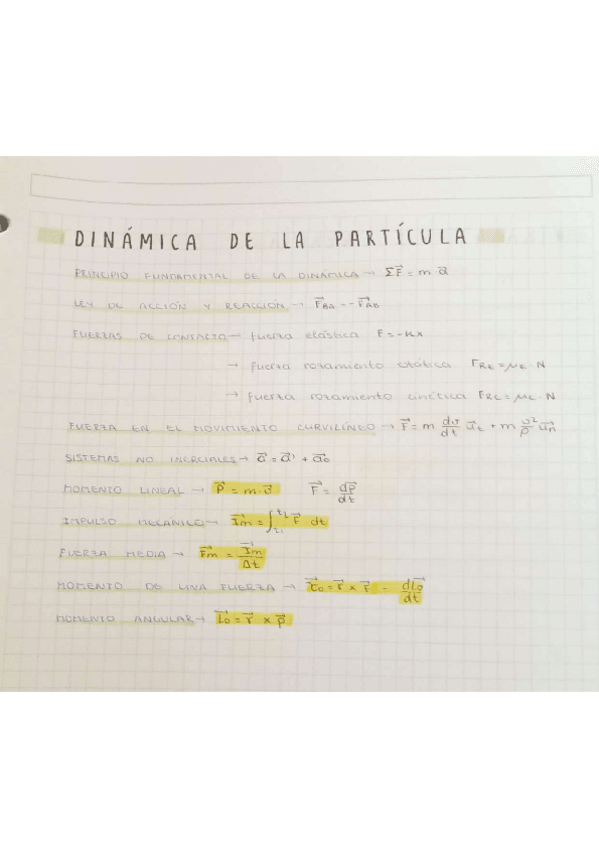 DINÁMICA DE LA PARTÍCULA
PRINCIPIO FUNDAMENTAL DE LA DINÁMICA → ΣF⃗ = m · a⃗
LEY DE ACCIÓN Y REACCIÓN → F⃗BA = -F⃗AB
FUERZAS DE CONTACTO → fuerza elástica F = -Kx
→ fuerza rozamiento estática FRE = μE · N
→ fuerza rozamiento cinética FRC = μC · N
FUERZA EN EL MOVIMIENTO CURVILÍNEO → F⃗ = m dv/dt u⃗t + m v²/ρ u⃗n
SISTEMAS NO INERCIALES → a⃗ = a⃗' + a⃗o
MOMENTO LINEAL → P⃗ = m · v⃗ F⃗ = dp⃗/dt
IMPULSO MECÁNICO → I⃗m = ∫t1t2 F⃗ · dt
FUERZA MEDIA → F⃗m = I⃗m/Δt
MOMENTO DE UNA FUERZA → τ⃗o = r⃗ × F⃗ = dL⃗o/dt
MOMENTO ANGULAR → L⃗o = r⃗ × p⃗